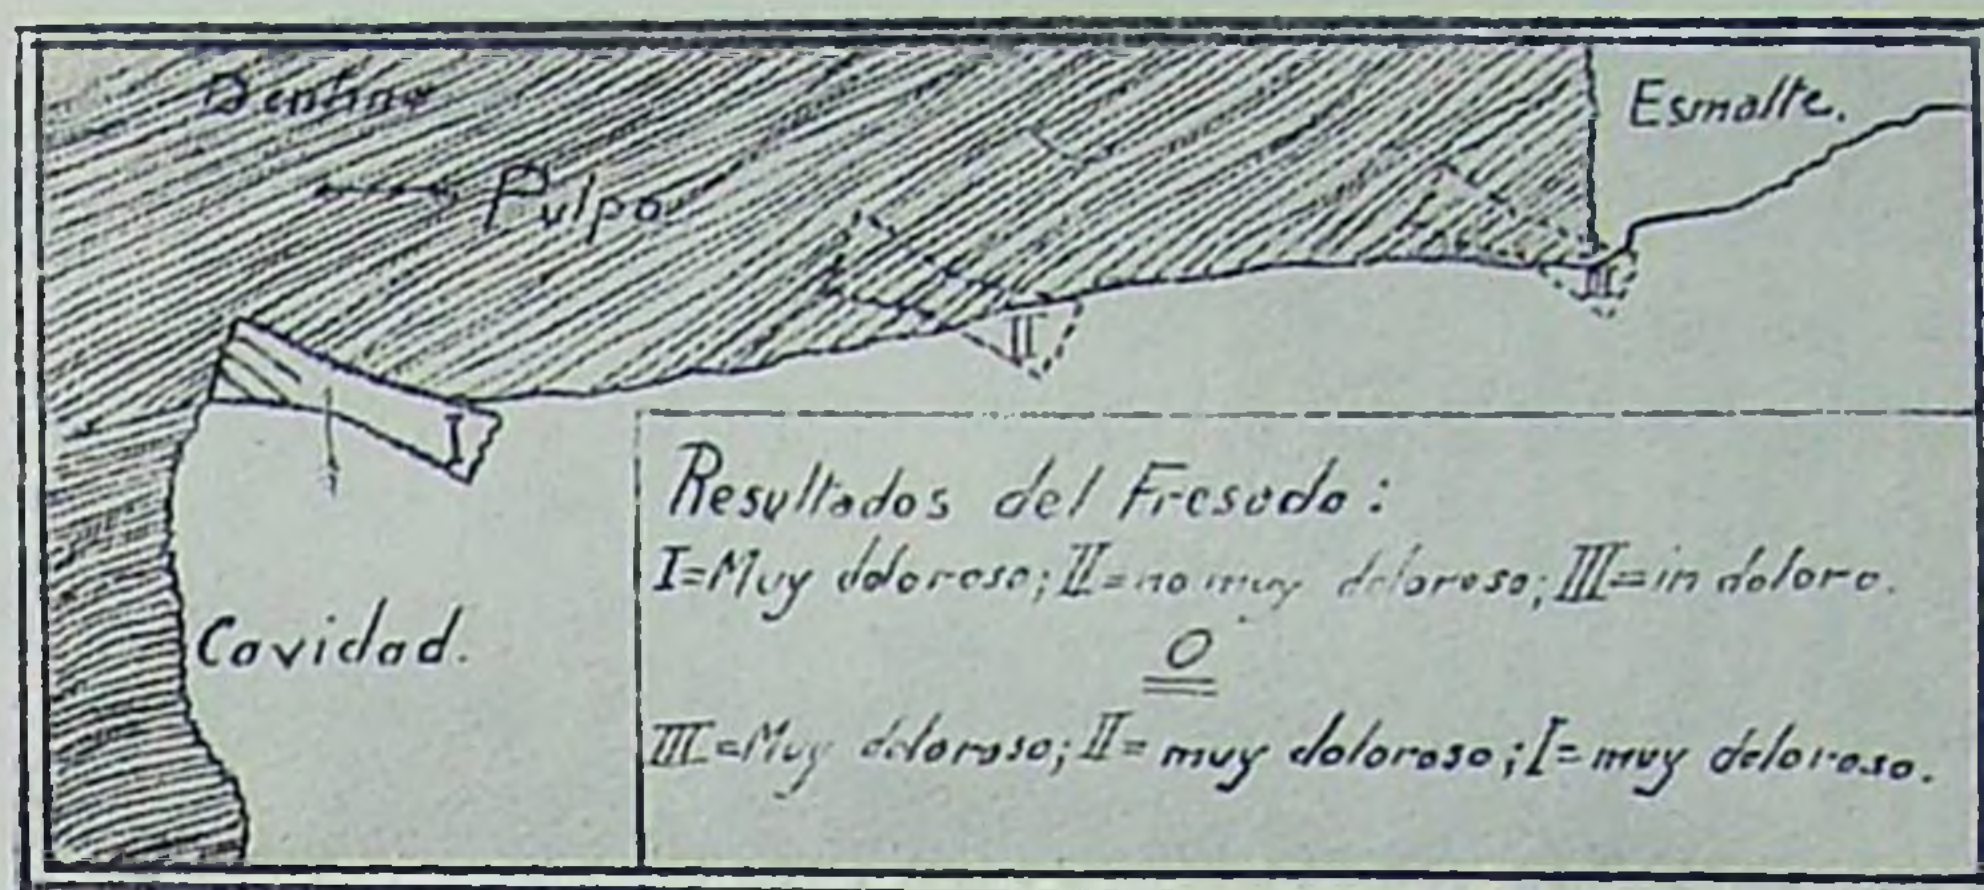 Dentina
Esmalte.
Pulpa
II
III
I
Cavidad.
Resultados del Fresado:
I=Muy doloroso; II=no muy doloroso; III=indoloro.
O
III=Muy doloroso; II=muy doloroso; I=muy doloroso.